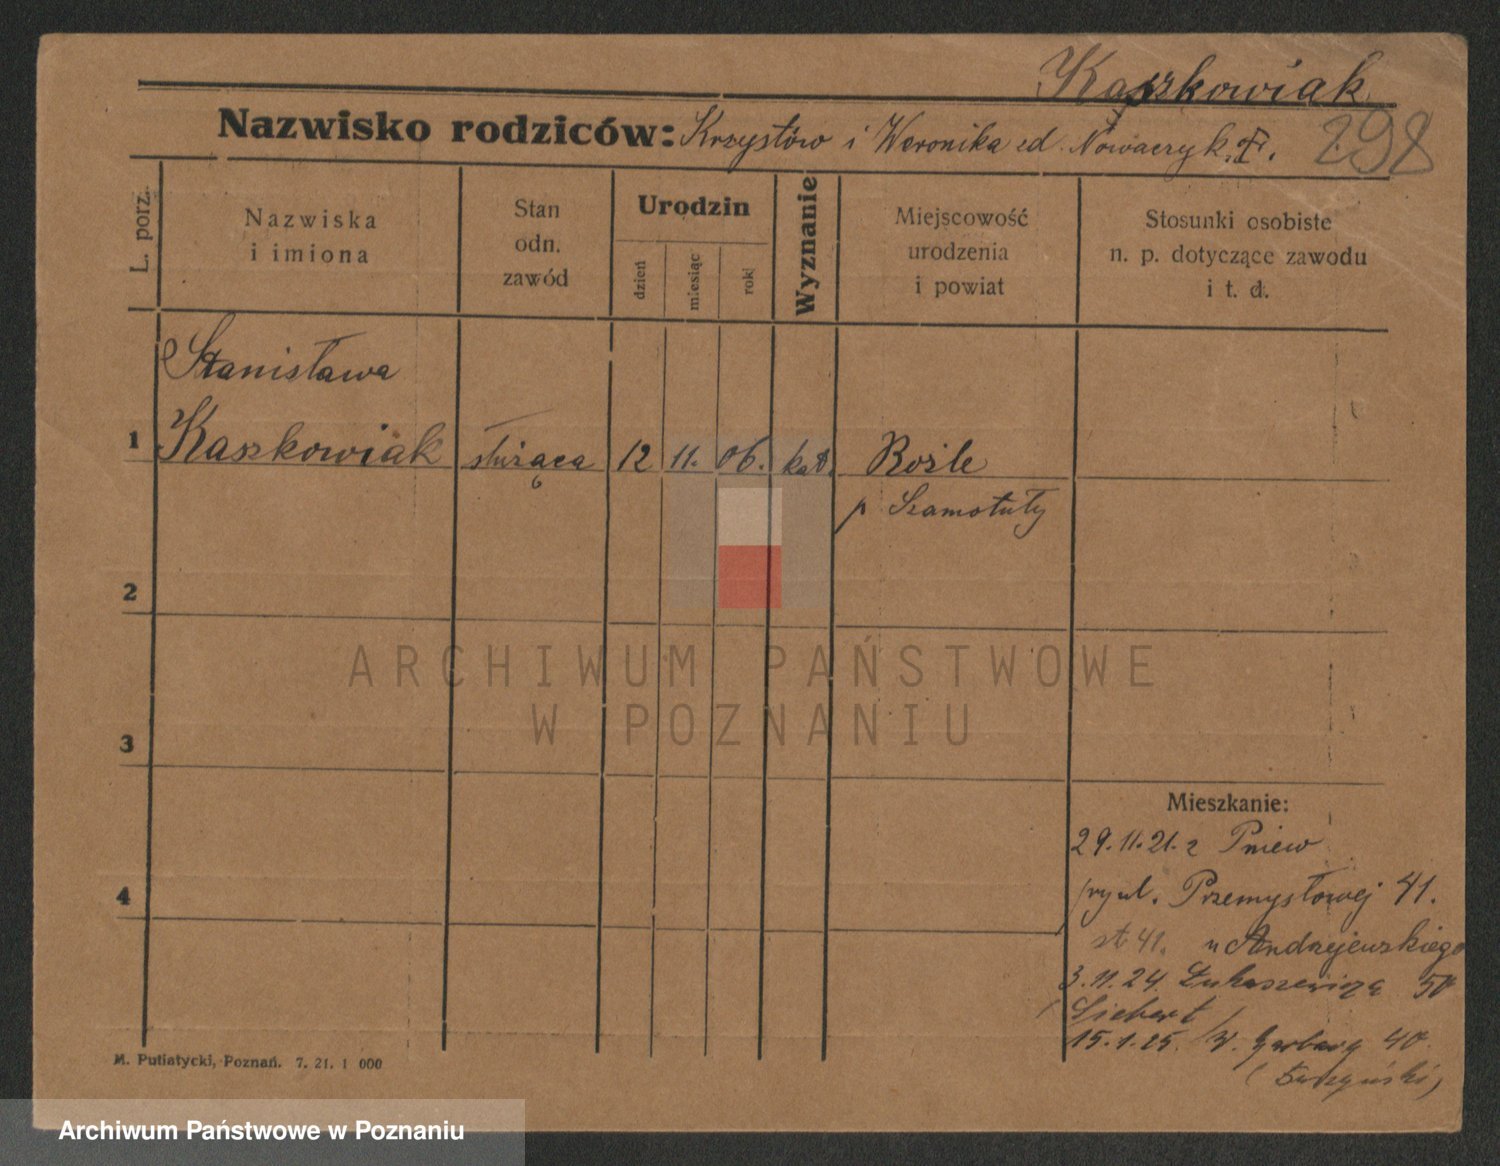 Kaszkowiak
Nazwisko rodziców: Krzystów i Weronika zd. Nowaczyk.
298
L. porz.
Nazwiska
i imiona
Stan
odn.
zawód
Urodzin
dzień
miesiąc
rok
Wyznanie
Miejscowość
urodzenia
i powiat
Stosunki osobiste
n. p. dotyczące zawodu
i t. d.
Stanisława
1 Kaszkowiak służąca 12 11. 06. kat. Roźle
p Szamotuły
2
ARCHIWUM PAŃSTWOWE
W POZNANIU
3
Mieszkanie:
29.11.21. z Pniew
ul. Przemysłowej 41.
4
41. u Andrzejewskiego
3.11.24. Łukaszewicza 50
Siebert
15.1.25. W. Garbary 40.
M. Putiatycki, Poznań. 7. 21. 1 000
Archiwum Państwowe w Poznaniu